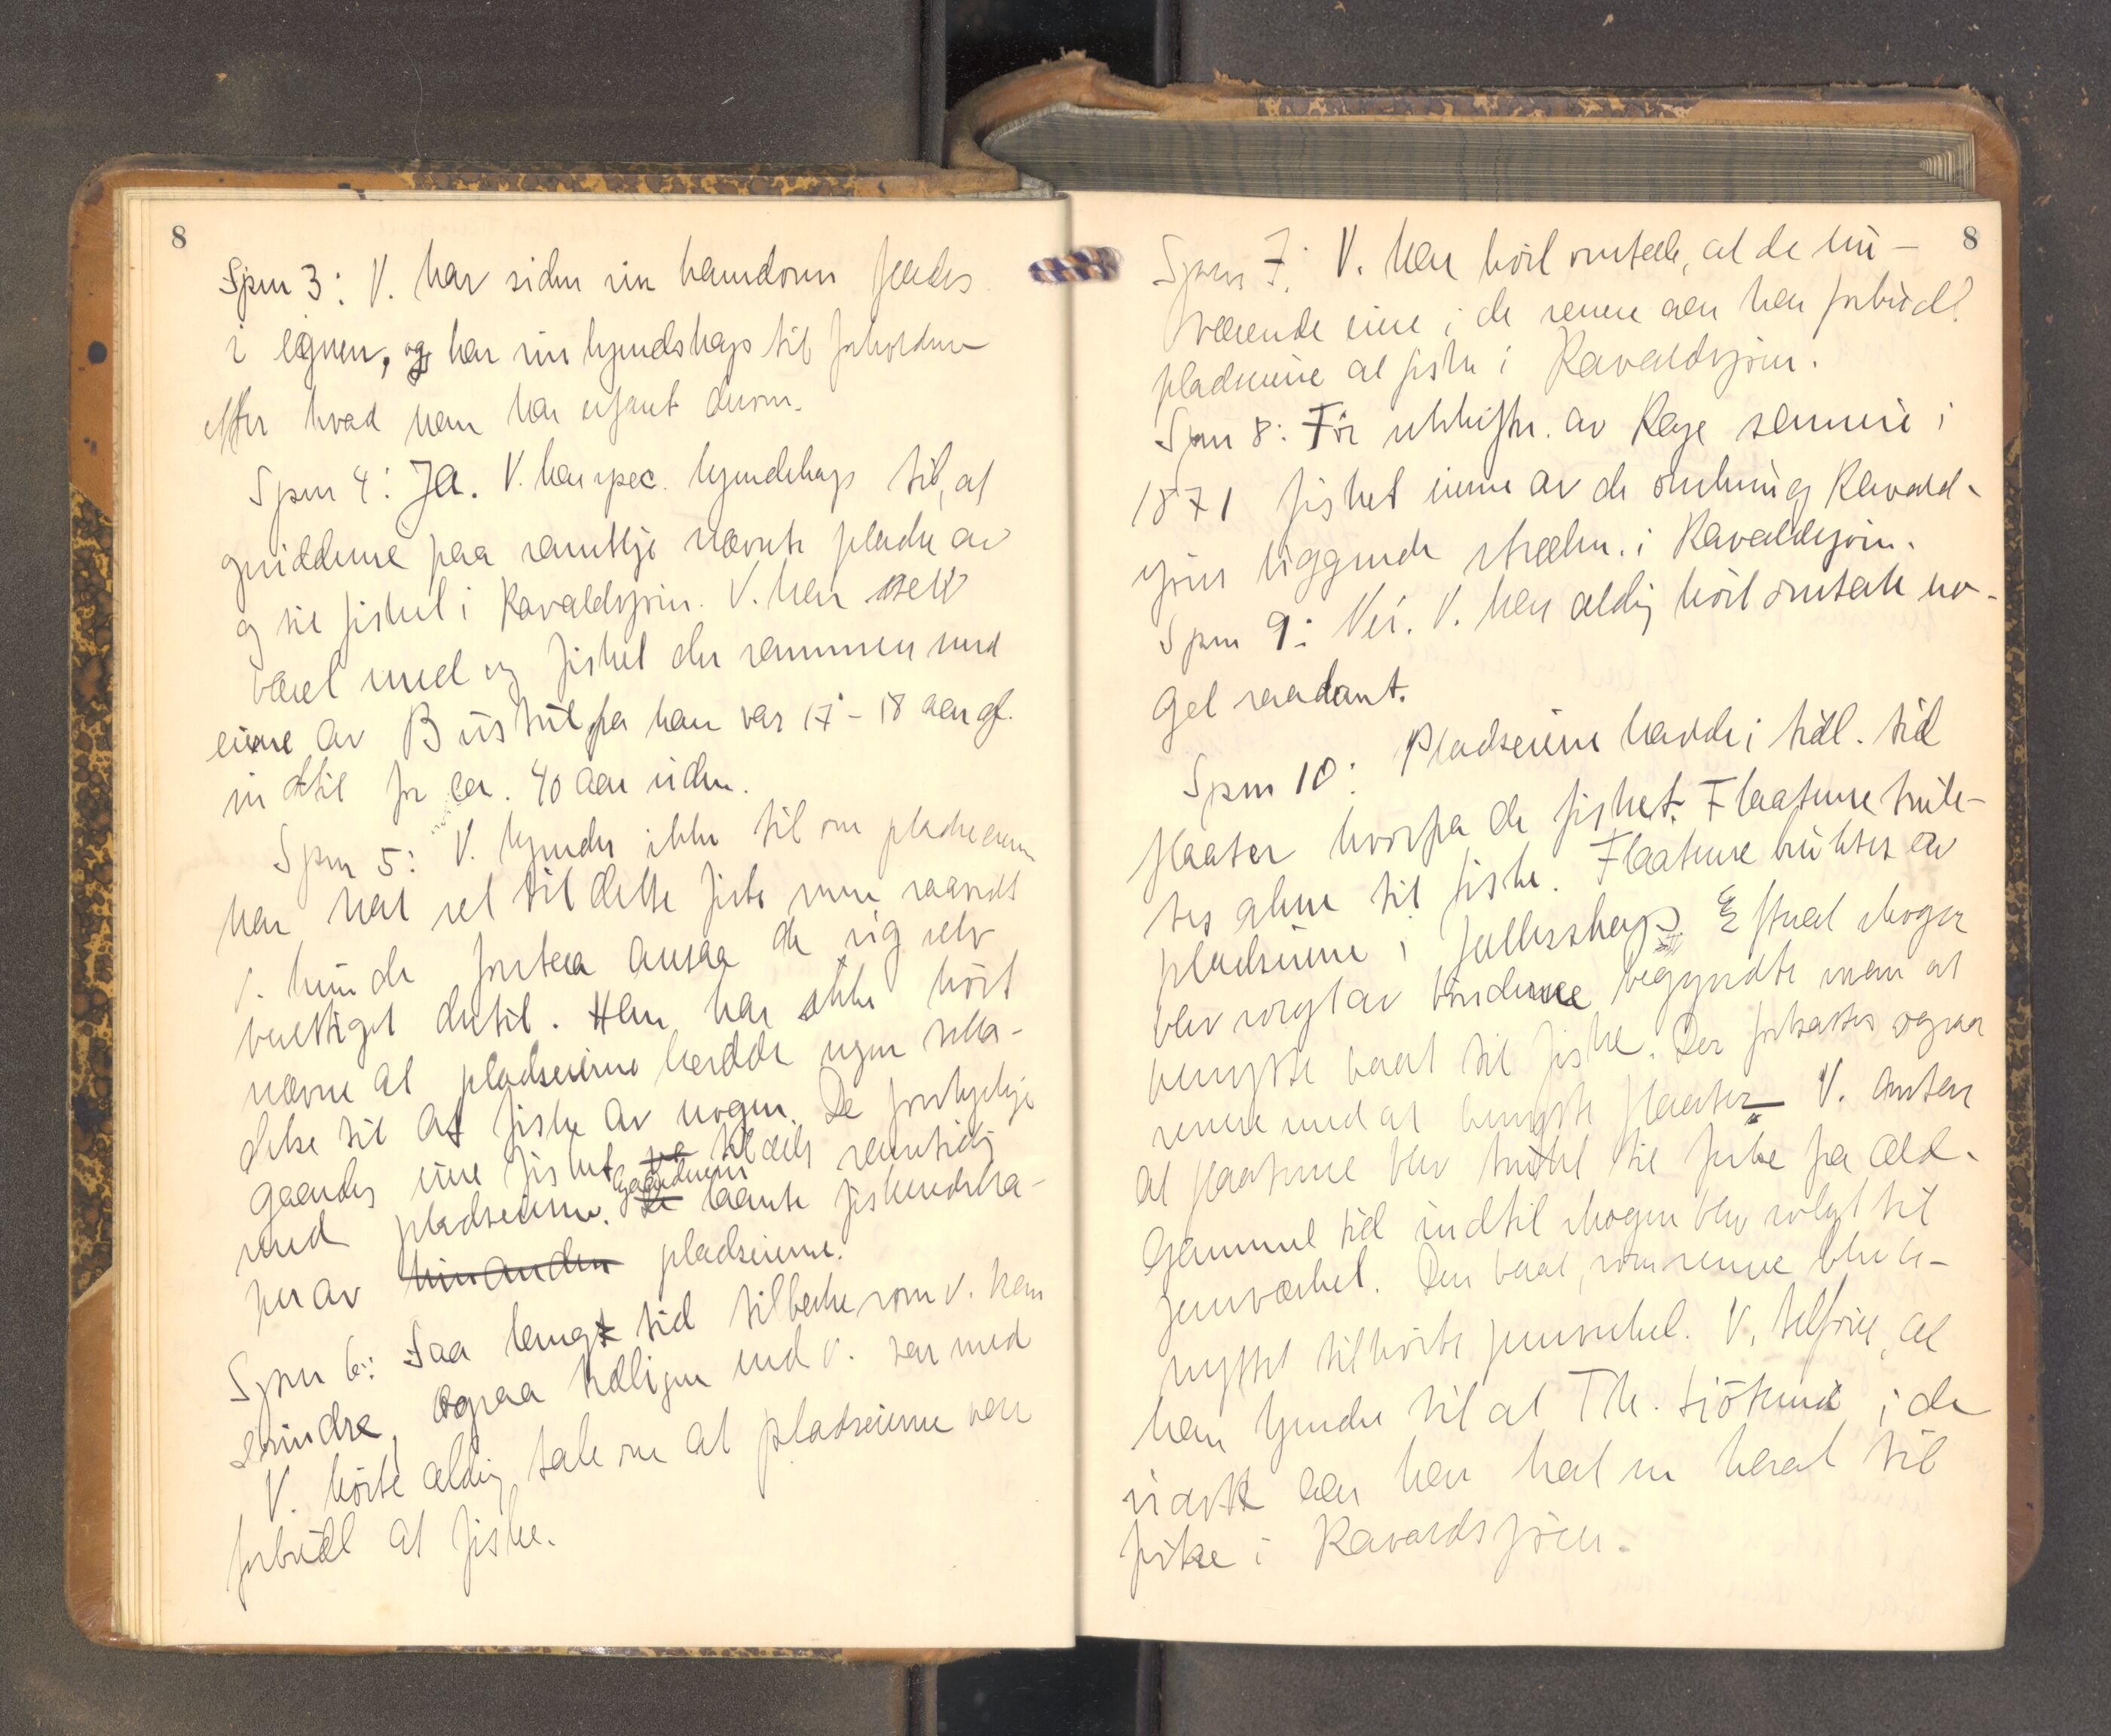 8
Spm 3: V. har siden sin barndom færdes
i egnen, og har sin kjendskap til forholdene
efter hvad han har erfart derom.
Spm 4: Ja. V. har spec. kjendskap til, at
opsidderne paa samtlige nævnte pladse av
og til fisket i Ravaldsjøen. V. har selv
været med og fisket der sammen med
eierne av Bustul fra han var 17-18 aar gl.
indtil for ca. 40 aar siden.
Spm 5: V. kjender ikke til om pladseierne
har hat ret til dette fiske men saavidt
V. kunde forstaa ansaa de sig selv
berettiget dertil. Han har ikke hört
nævne at pladseierne hadde nogen tilla-
delse til at fiske av nogen. De forskjellige
gaardes eiere fisket til dels samtidig
med pladseierne. Gaardeierne laante fiskeredska-
per av hinanden pladseierne.
Spm 6: Saa langt tid tilbake som V. kan
erindre, ogsaa tidligere end V. var med
V. hörte aldrig tale om at pladseierne var
forbudt at fiske.
8
Spm 7: V. har hört omtale, at de nu-
værende eiere i de senere aar har forbudt
pladseierne at fiske i Ravaldsjøen.
Spm 8: För utskiftn. av Kage sameie i
1871 fisket eierne av de omkring Ravald-
sjöen liggende strækn. i Ravaldsjøen.
Spm 9: Nei. V. har aldrig hört omtale no-
get saadant.
Spm 10: Pladseierne hadde i tidl. tid
flaater hvorpa de fisket. Flaatene bruk-
tes alene til fiske. Flaatene bruktes av
pladseierne i fællesskap. Efterat skogen
blev solgt av bönderne begyndte man at
benytte baat til fiske. Der fortsattes ogsaa
senere med at benytte flaater. V. antar
at flaatene blev brukt til fiske fra æld-
gammel tid indtil skogen blev solgt til
jernverket. Den baat, som senere blev be-
nyttet tilhörte jernverket. V. tilföier, at
han kjender til at Th. Liökerud i de
siste aar har hat en baat til
fiske i Ravaldsjøen.